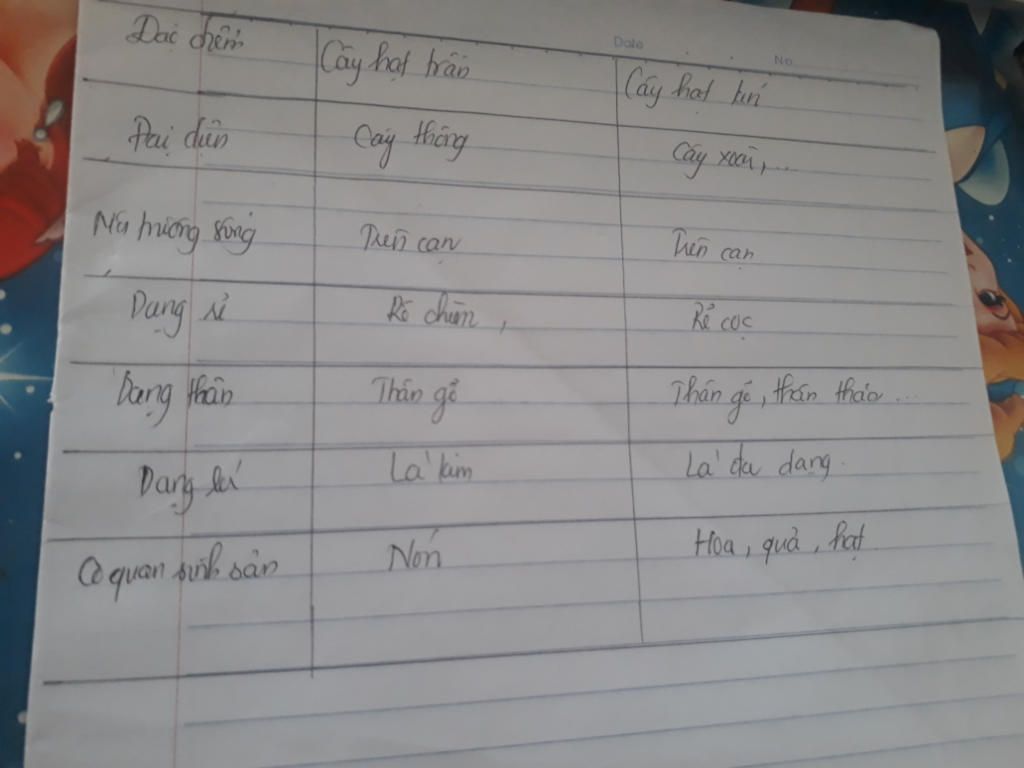 Date No
Đặc điểm Cây hạt trần Cây hạt kín
Đại diện Cây thông Cây xoài,...
Môi trường sống Trên cạn Trên cạn
Dạng rễ Rễ chùm, Rễ cọc
Dạng thân Thân gỗ Thân gỗ, thân thảo...
Dạng lá Lá kim Lá đa dạng.
Cơ quan sinh sản Nón Hoa, quả, hạt